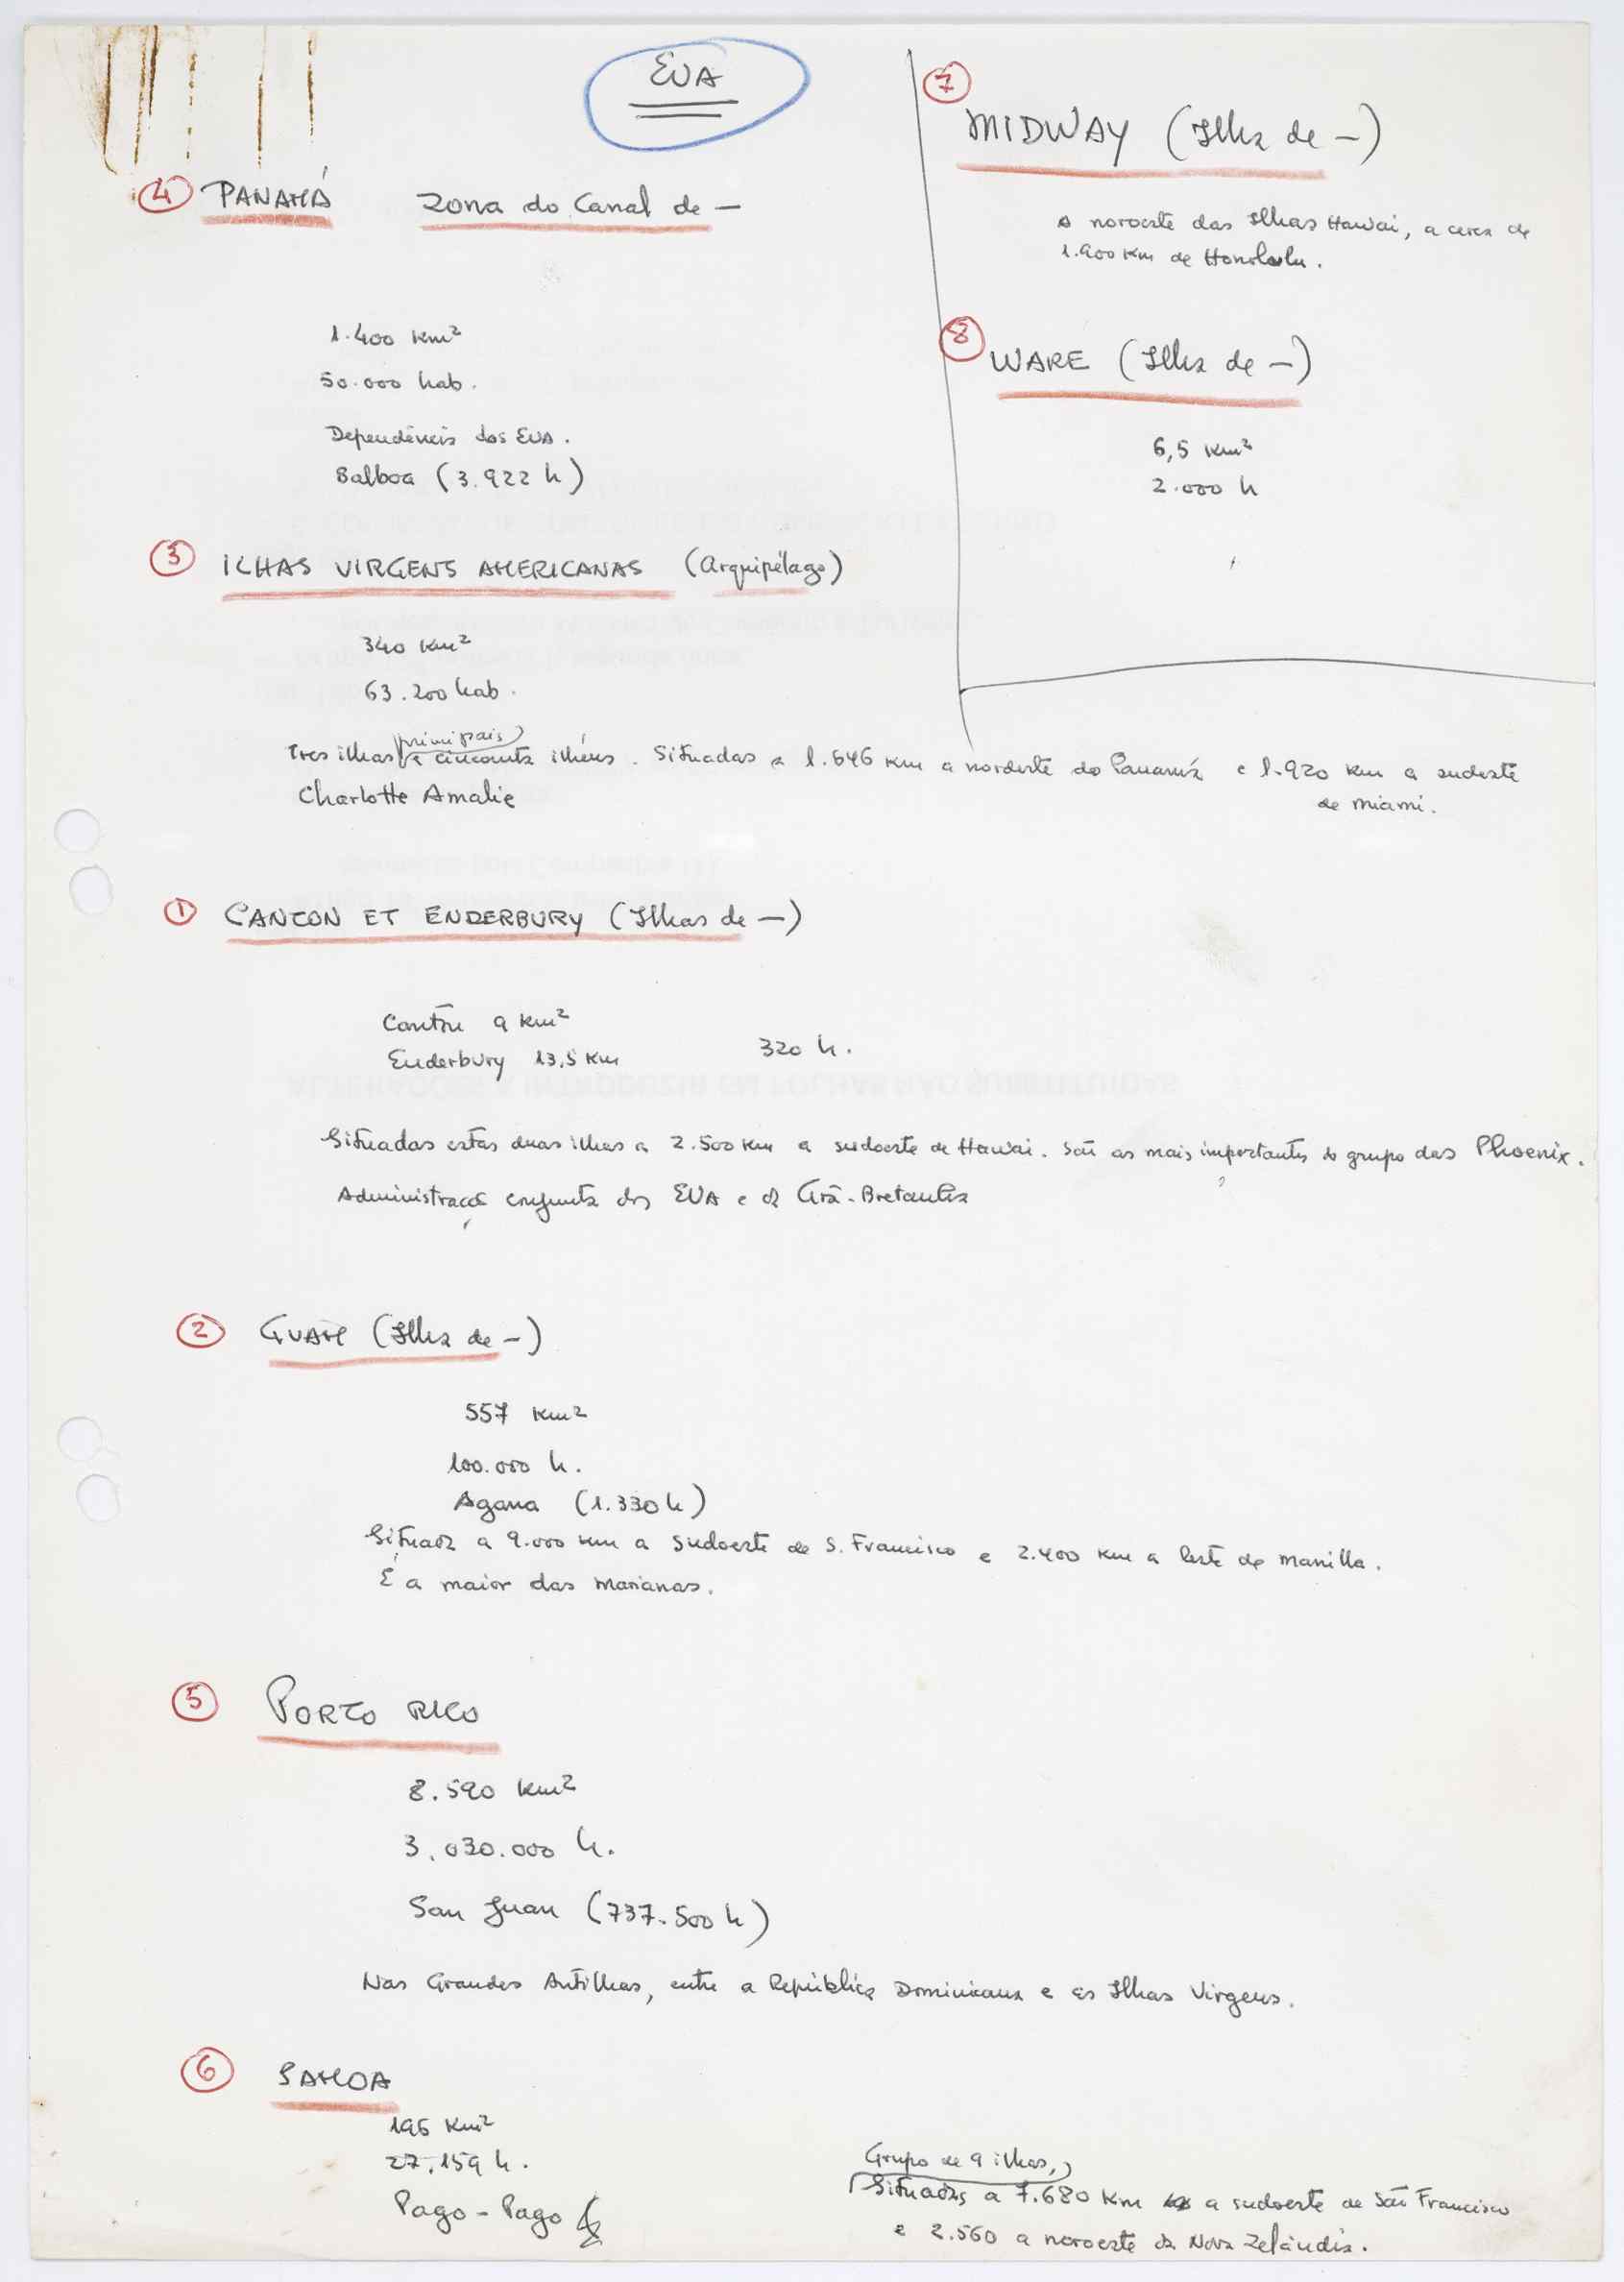 EUA
④ PANAMÁ Zona do Canal de —
1.400 Km²
50.000 hab.
Dependência dos EUA.
Balboa (3.922 h)
③ ILHAS VIRGENS AMERICANAS (Arquipélago)
340 Km²
63.200 hab.
principais
Tres ilhas e cincoenta ilhéus. Situadas a 1.646 Km a nordeste do Panamá e 1.920 Km a sudeste
Charlotte Amalie
de Miami.
① CANTON ET ENDERBURY (Ilhas de —)
Cantão 9 Km²
Enderbury 13,5 Km
320 h.
Situadas estas duas ilhas a 2.500 Km a sudoeste de Hawai. São as mais importantes do grupo das Phoenix.
Administração conjunta dos EUA e da Grã-Bretanha
② GUAM (Ilha de —)
557 Km²
100.000 h.
Agana (1.330 h)
Situada a 9.000 Km a sudoeste de S. Francisco e 2.400 Km a leste de Manilla.
É a maior das Marianas.
⑤ PORTO RICO
8.590 Km²
3.030.000 h.
San Juan (737.500 h)
Nas Grandes Antilhas, entre a República Dominicana e as Ilhas Virgens.
⑥ SAMOA
195 Km²
27.159 h.
Pago-Pago
Grupo de 9 ilhas,
Situadas a 7.680 Km a sudoeste de São Francisco
e 2.560 a noroeste da Nova Zelândia.
⑦
MIDWAY (Ilha de —)
A noroeste das Ilhas Hawai, a cerca de
1.900 Km de Honolulu.
⑧ WAKE (Ilha de —)
6,5 Km²
2.000 h